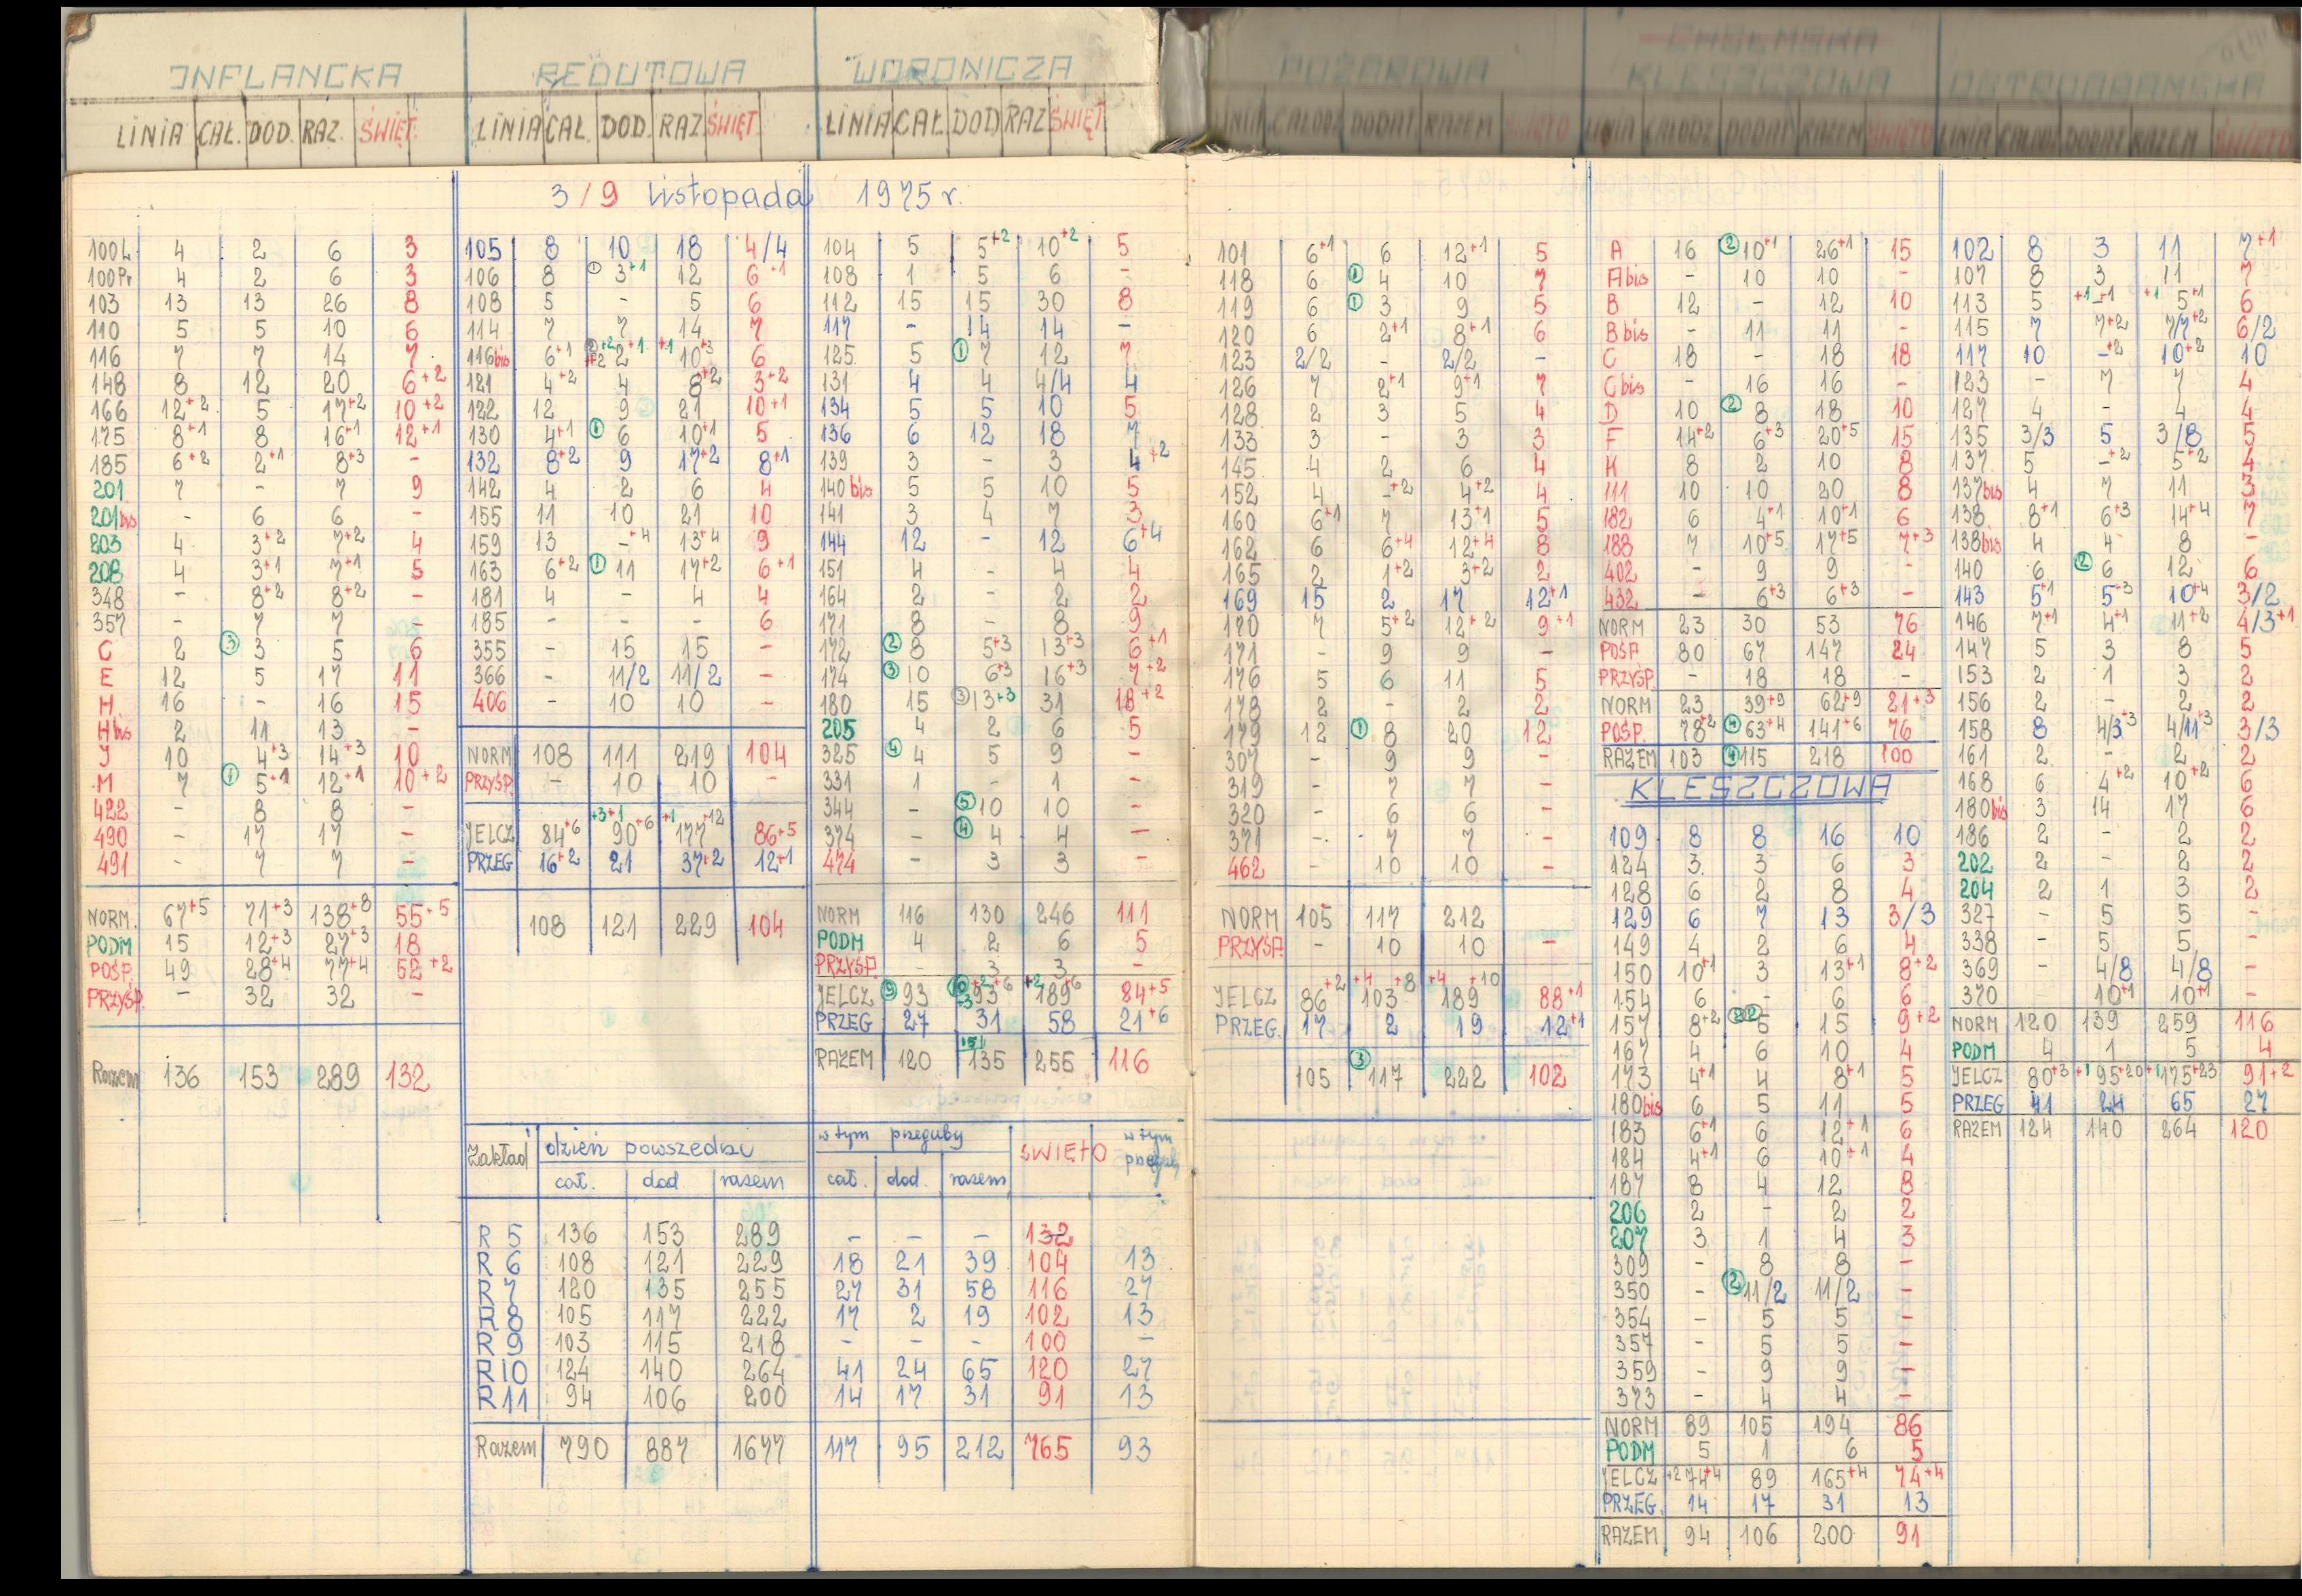 INFLANCKA
LINIA CAŁ. DOD. RAZ. ŚWIĘT.
100L 4 2 6 3
100Pr 4 2 6 3
103 13 13 26 8
110 5 5 10 6
116 7 7 14 7
148 8 12 20 6+2
166 12+2 5 17+2 10+2
175 8+1 8 16+1 12+1
185 6+2 2+1 8+3 -
201 7 - 7 9
201bis - 6 6 -
203 4 3+2 7+2 4
208 4 3+1 7+1 5
348 - 8+2 8+2 -
357 - 7 7 -
C 2 ③ 3 5 6
E 12 5 17 11
H 16 - 16 15
H bis 2 11 13 -
J 10 4+3 14+3 10
M 7 ① 5+1 12+1 10+2
422 - 8 8 -
490 - 17 17 -
491 - 7 7 -
NORM. 67+5 71+3 138+8 55+5
PODM 15 12+3 27+3 18
POŚP. 49 28+4 77+4 52+2
PRZYŚP. - 32 32 -
Razem 136 153 289 132
REDUTOWA
LINIA CAŁ. DOD. RAZ. ŚWIĘT.
3/9 listopada 1975 r.
105 8 10 18 4/4
106 8 ① 3+1 12 6+1
108 5 - 5 6
114 7 7 14 7
116bis 6+1 2+1 +1 10+3 6
121 4+2 4 8+2 3+2
122 12 9 21 10+1
130 4+1 ① 6 10+1 5
132 8+2 9 17+2 8+1
142 4 2 6 4
155 11 10 21 10
159 13 -+4 13+4 9
163 6+2 ① 11 17+2 6+1
181 4 - 4 4
185 - - - 6
355 - 15 15 -
366 - 11/2 11/2 -
406 - 10 10 -
NORM 108 111 219 104
PRZYŚP. - 10 10 -
JELCZ 84+6 +3+1 90+6 +1 177+12 86+5
PRZEG 16+2 21 37+2 12+1
108 121 229 104
WORONICZA
LINIA CAŁ DOD RAZ ŚWIĘT
104 5 5+2 10+2 5
108 1 5 6 -
112 15 15 30 8
117 - 14 14 -
125 5 ① 7 12 7
131 4 4 4/4 4
134 5 5 10 5
136 6 12 18 7
139 3 - 3 4+2
140 bis 5 5 10 5
141 3 4 7 3
144 12 - 12 6+4
151 4 - 4 4
164 2 - 2 2
171 8 - 8 9
172 ② 8 5+3 13+3 6+1
174 ③ 10 6+3 16+3 7+2
180 15 ③ 13+3 31 18+2
205 4 2 6 5
325 ④ 4 5 9 -
331 1 - 1 -
344 - ⑤ 10 10 -
374 - ④ 4 4 -
474 - 3 3 -
NORM 116 130 246 111
PODM 4 2 6 5
PRZYŚP. - 3 3 -
JELCZ ⑨ 93 ⑩ +2+6 +3 93 +2 189+6 84+5
PRZEG 27 31 58 21+6
RAZEM 120 135 255 116
Zakład dzień powszedni w tym przeguby ŚWIĘTO w tym przeguby
cał. dod. razem cał. dod. razem
R 5 136 153 289 - - - 132
R 6 108 121 229 18 21 39 104 13
R 7 120 135 255 27 31 58 116 27
R 8 105 117 222 17 2 19 102 13
R 9 103 115 218 - - - 100 -
R 10 124 140 264 41 24 65 120 27
R 11 94 106 200 14 17 31 91 13
Razem 790 887 1677 117 95 212 765 93
POŻAROWA
LINIA CAŁODZ DODAT RAZEM ŚWIĘTO
101 6+1 6 12+1 5
118 6 ① 4 10 7
119 6 ① 3 9 5
120 6 2+1 8+1 6
123 2/2 - 2/2 -
126 7 2+1 9+1 7
128 2 3 5 4
133 3 - 3 3
145 4 2 6 4
152 4 -+2 4+2 4
160 6+1 7 13+1 5
162 6 6+4 12+4 8
165 2 1+2 3+2 2
169 15 2 17 12+1
170 7 5+2 12+2 9+1
171 - 9 9 -
176 5 6 11 5
178 2 - 2 2
179 12 ① 8 20 12
307 - 9 9 -
319 - 7 7 -
320 - 6 6 -
371 - 7 7 -
462 - 10 10 -
NORM 105 117 212
PRZYŚP. - 10 10 -
JELCZ 86+2 +4 103+8 +4 189+10 88+1
PRZEG. 17 2 19 12+1
105 ③ 117 222 102
KLESZCZOWA
LINIA CAŁODZ DODAT RAZEM ŚWIĘTO
A 16 ② 10+1 26+1 15
A bis - 10 10 -
B 12 - 12 10
B bis - 11 11 -
C 18 - 18 18
C bis - 16 16 -
D 10 ② 8 18 10
F 14+2 6+3 20+5 15
K 8 2 10 8
111 10 10 20 8
182 6 4+1 10+1 6
188 7 10+5 17+5 7+3
402 - 9 9 -
432 - 6+3 6+3 -
NORM 23 30 53 76
POŚP. 80 67 147 24
PRZYŚP. - 18 18 -
NORM 23 39+9 62+9 21+3
POŚP. 78+2 ④ 63+4 141+6 76
RAZEM 103 ④ 115 218 100
KLESZCZOWA
109 8 8 16 10
124 3 3 6 3
128 6 2 8 4
129 6 7 13 3/3
149 4 2 6 4
150 10+1 3 13+1 8+2
154 6 - 6 6
157 8+2 5 15 9+2
167 4 6 10 4
173 4+1 4 8+1 5
180bis 6 5 11 5
183 6+1 6 12+1 6
184 4+1 6 10+1 4
187 8 4 12 8
206 2 - 2 2
207 3 1 4 3
309 - 8 8 -
350 - ② 11/2 11/2 -
354 - 5 5 -
357 - 5 5 -
359 - 9 9 -
373 - 4 4 -
NORM 89 105 194 86
PODM 5 1 6 5
JELCZ +2 74+4 89 165+4 74+4
PRZEG. 14 17 31 13
RAZEM 94 106 200 91
OSTROBRAMSKA
LINIA CAŁODZ DODAT RAZEM ŚWIĘTO
102 8 3 11 7+1
107 8 3 11 7
113 5 +1 -+1 +1 5+1 6
115 7 7+2 7/7+2 6/2
117 10 -+2 10+2 10
123 - 7 7 4
127 4 - 4 4
135 3/3 5 3/8 5
137 5 -+2 5+2 4
137bis 4 7 11 3
138 8+1 6+3 14+4 7
138bis 4 4 8 -
140 6 ② 6 12 6
143 5+1 5+3 10+4 3/2
146 7+1 4+1 11+2 4/3+1
147 5 3 8 5
153 2 1 3 2
156 2 - 2 2
158 8 4/3+3 4/11+3 3/3
161 2 - 2 2
168 6 4+2 10+2 6
180bis 3 14 17 6
186 2 - 2 2
202 2 - 2 2
204 2 1 3 2
327 - 5 5 -
338 - 5 5 -
369 - 4/8 4/8 -
370 - 10+1 10+1 -
NORM 120 139 259 116
PODM 4 1 5 4
JELCZ 80+3 +1 95+20 +1 175+23 91+2
PRZEG 41 24 65 27
RAZEM 124 140 264 120